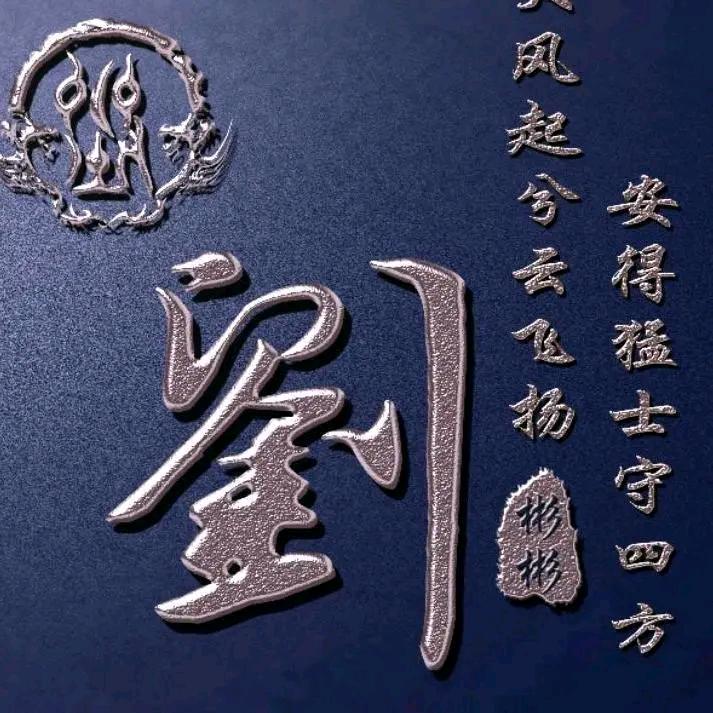 大风起兮云飞扬
安得猛士守四方
劉
彬彬